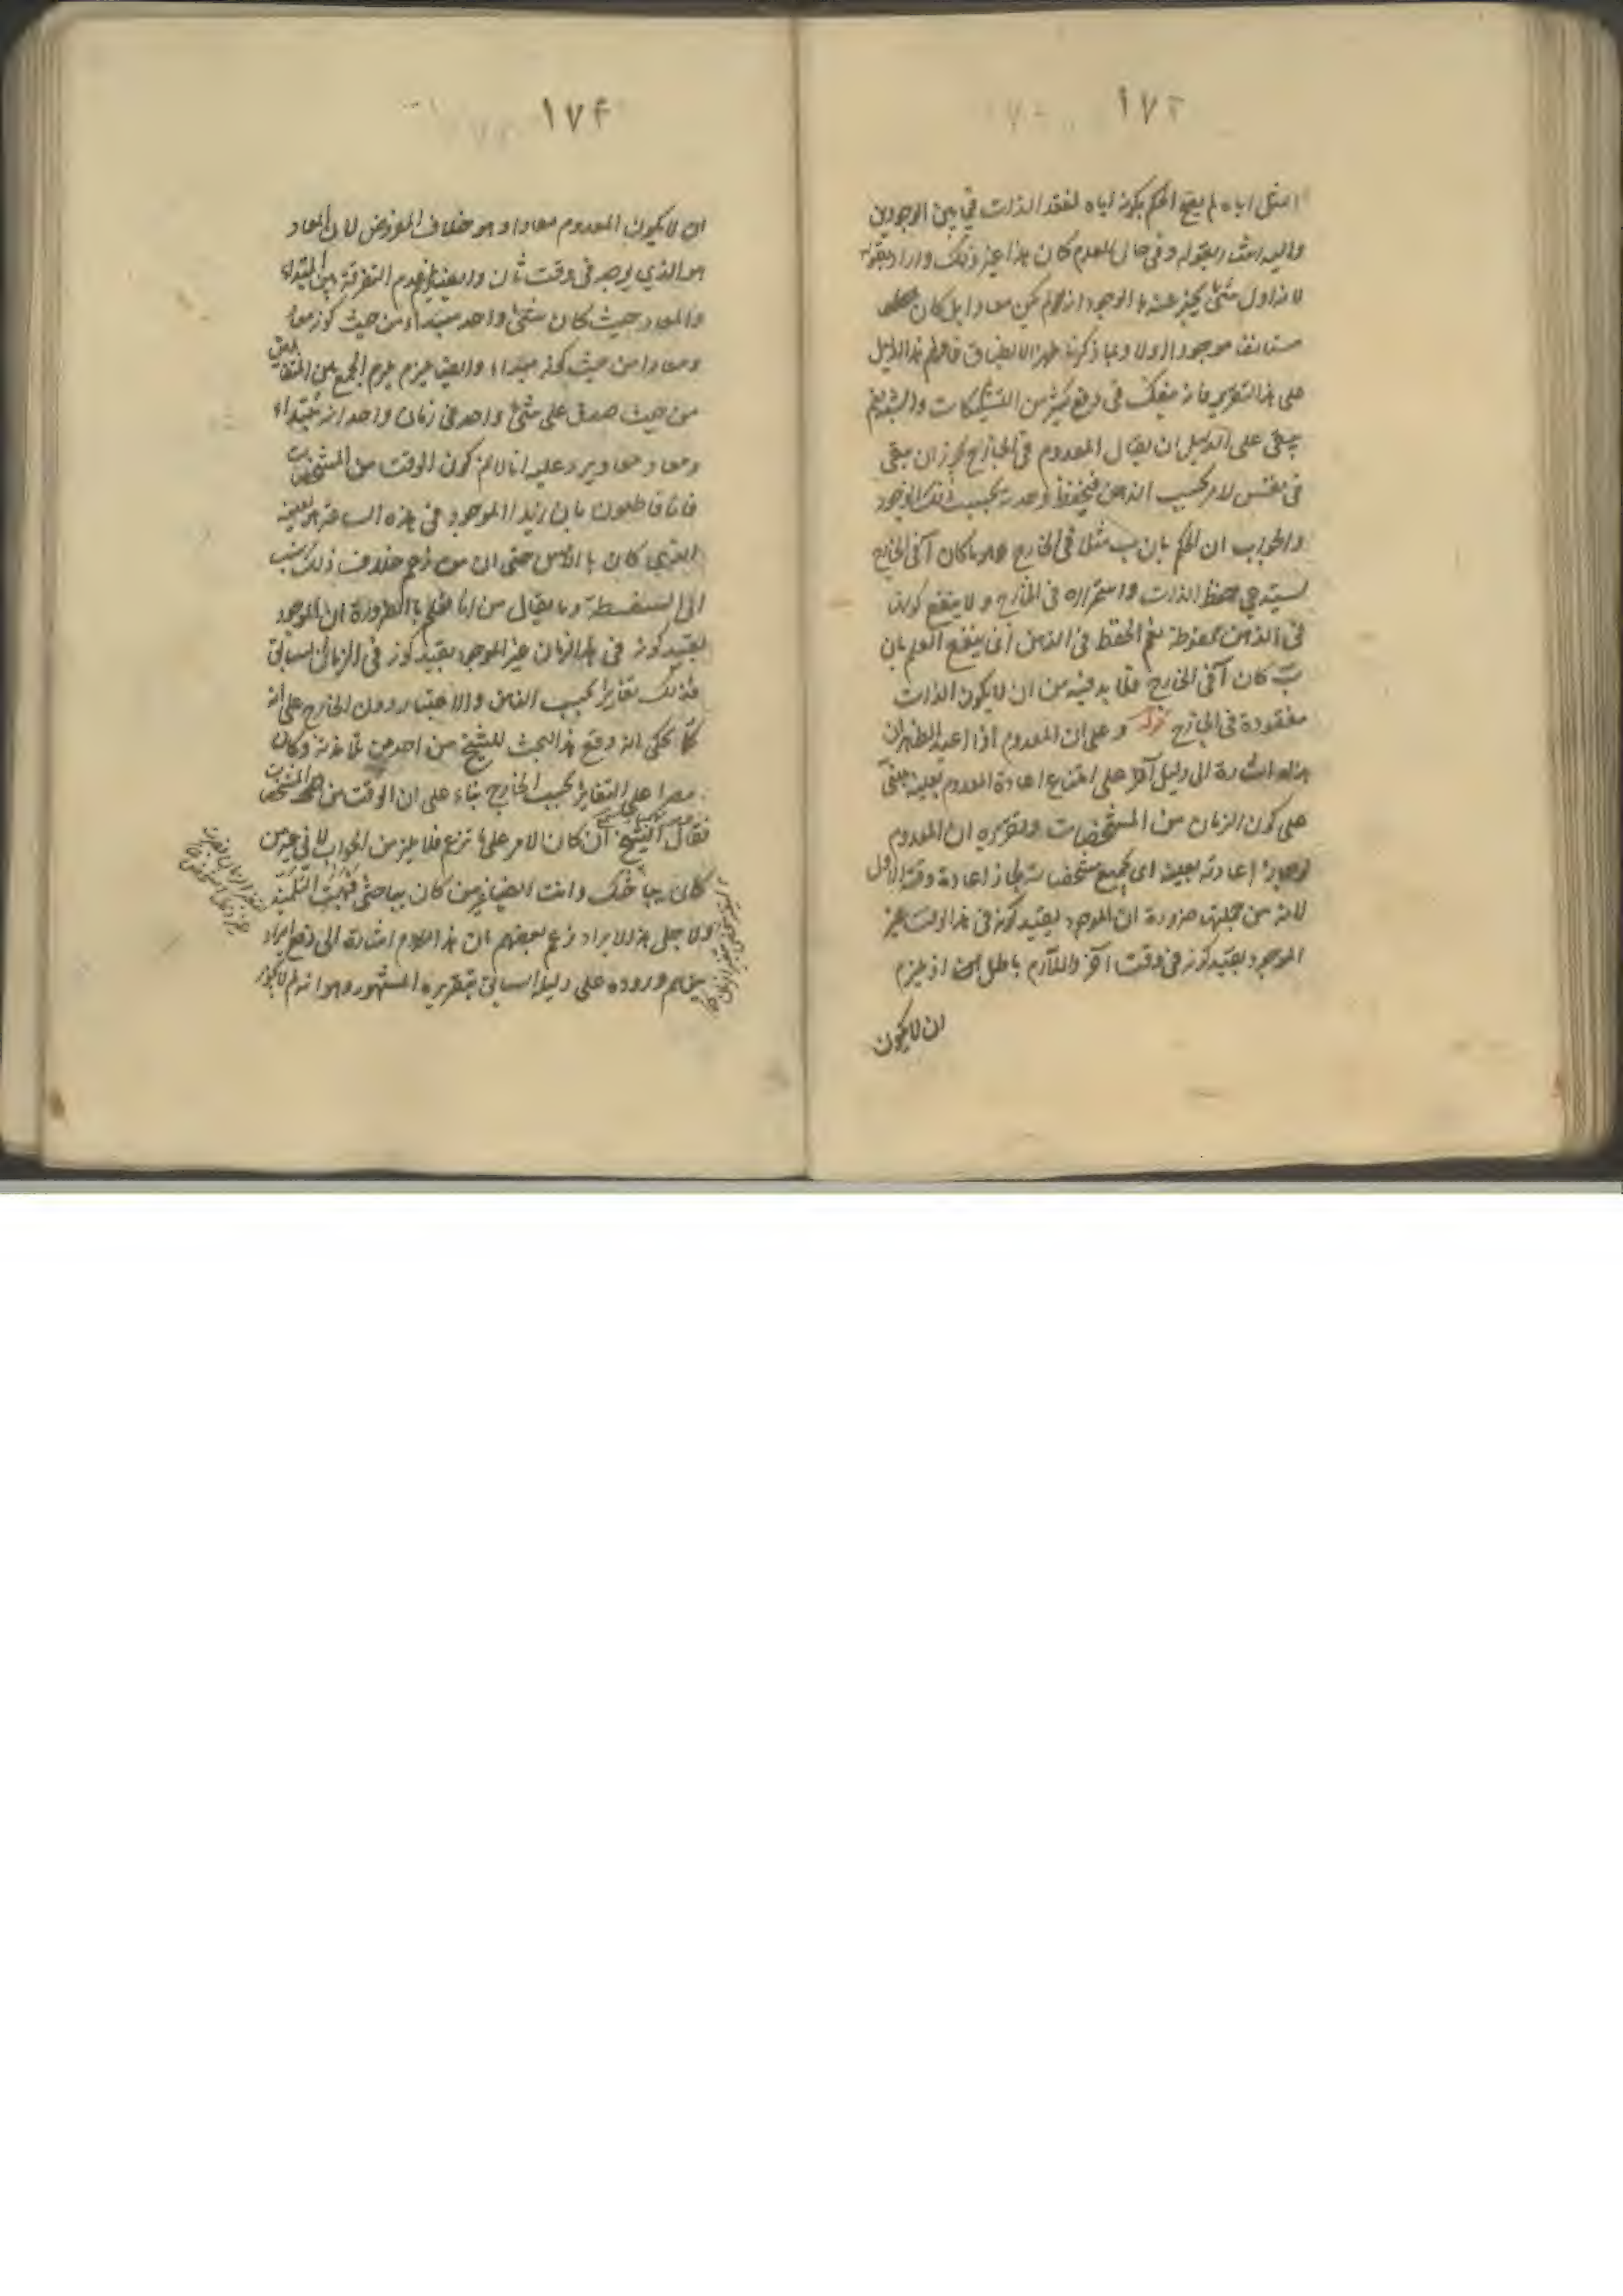 ١٧٣
المثل اياه لم يصح الحكم بكونه اياه لفقد الذات فيما بين الوجودين
واليه اشار بقوله وفي حال العدم كان هذا غير ذلك واراد بقوله
لانه اول شئ يخبر عنه بالوجود انه لم يكن معادا بل كان
مستانفا موجودا اولا وبما ذكرنا ظهر الانطباق فافهم هذا الدليل
على هذا التقرير فانه ينفعك في دفع كثير من التشكيكات والشبه نعم
يبقى على الدليل ان يقال المعدوم في الخارج يجوز ان يبقى
في نفس الامر بحسب الذهن فيحفظ وحدته بحسب ذلك الوجود
والجواب ان الحكم بان ب مثلا في الخارج هو ما كان آ في الخارج
يستدعي حفظ الذات واستمراره في الخارج ولا ينفع كونها
في الذهن محفوظة نعم الحفظ في الذهن انما ينفع العلم بان
ب كان آ في الخارج فلا بد فيه من ان لا يكون الذات
مفقودة في الخارج قوله وعلى ان المعدوم اذا اعيد الظاهر ان
هذا اشارة الى دليل آخر على امتناع اعادة المعدوم بعينه مبني
على كون الزمان من المشخصات وتقريره ان المعدوم
لو جاز اعادته بعينه اى بجميع مشخصاته لجاز اعادة وقته الاول
لانه من جملتها ضرورة ان الموجود بقيد كونه في هذا الوقت غير
الموجود بقيد كونه في وقت آخر واللازم باطل اذ يلزم
ان لا يكون
١٧٤
ان لا يكون المعدوم معادا وهو خلاف المفروض لان المعاد
هو الذي يوجد في وقت ثان وايضا يلزم عدم التفرقة بين المبتداء
والمعاد حيث كان شئ واحد مبتداء من حيث كونه معادا
ومعادا من حيث كونه مبتداء وايضا يلزم الجمع بين المتقابلين
من حيث صدق على شئ واحد في زمان واحد انه مبتداء
ومعاد معا ويرد عليه انا لا نم كون الوقت من المشخصات
فانا قاطعون بان زيدا الموجود في هذه الساعة هو بعينه
الذي كان بالامس حتى ان من زعم خلاف ذلك نسب
الى السفسطة وما يقال من انا نعلم بالضرورة ان الموجود
بقيد كونه في هذا الزمان غير الموجود بقيد كونه في الزمان السابق
فذلك تغاير بحسب الذهن والاعتبار دون الخارج على انه
كما يحكى انه وقع هذا البحث للشيخ من احد من تلامذته وكان
مصرا على التغاير بحسب الخارج بناء على ان الوقت من المشخصات
فقال الشيخ ان كان الامر على ما تزعم فلا يلزمني الجواب لاني غير من
كان يباحثك وانت ايضا غير من كان يباحثني فبهت التلميذ
ولاجل هذا الايراد زعم بعضهم ان هذا الكلام اشارة الى دفع ايراد
يتوهم وروده على دليل السابق بتقريره المشهور وهو انه لم لا يجوز